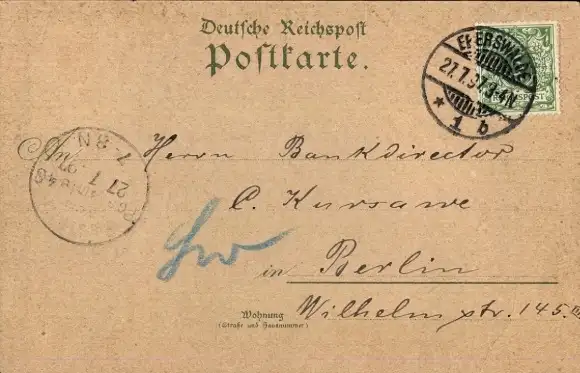 Deutsche Reichspost
Postkarte.
EBERSWALDE
27.7.97.3-4N
* 1 b
An Herrn Bankdirector
C. Kursawe
in Berlin
Wilhelm str. 145.
Wohnung
(Straße und Hausnummer)
7-8N
27 7 97